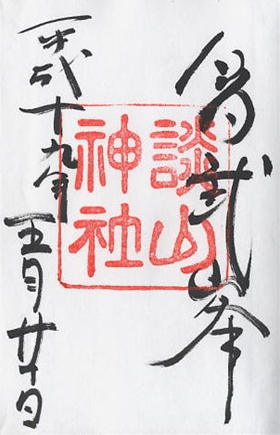 多武峯
談山
神社
平成十九年五月廿日